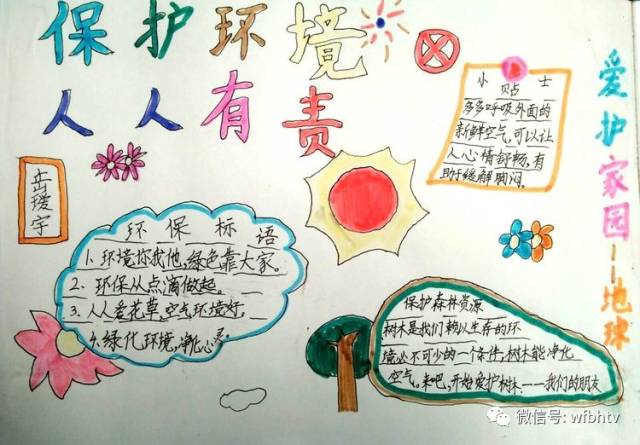 保护环境
人人有责
小贴士
多多呼吸外面的
新鲜空气,可以让
人心情舒畅,有
助于缓解胸闷。
爱护家园——地球
环保标语
1.环境你我他,绿色靠大家。
2.环保从点滴做起。
3.人人爱花草,空气环境好。
4.绿化环境,净化心灵。
保护森林资源
树木是我们赖以生存的环
境必不可少的一个条件,树木能净化
空气。来吧,开始爱护树木——我们的朋友
微信号: wfbhtv